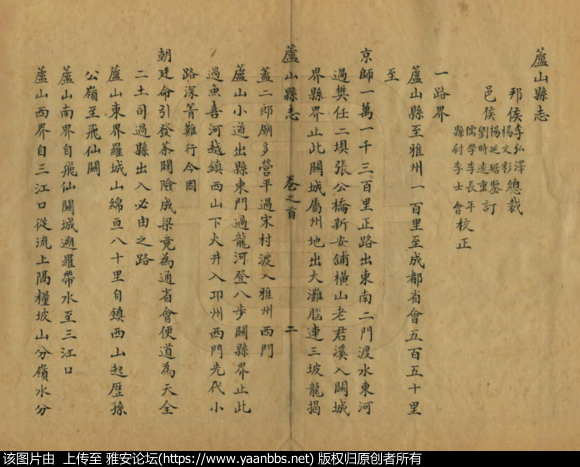 蘆山縣志
邦侯李弘澤總裁
楊文彩
邑侯楊廷琚鑒訂
劉時遠重
儒學李長年
縣尉李士會校正
一路界
蘆山縣至雅州一百里至成都省會五百五十里
至
京師一萬一千三百里正路出東南二門渡水東河
過樊任二壩張公橋新安舖橫山老君溪入關城
界縣界止此關城屬州地出大灘臨連三坡龍揭
蘆山縣志
卷之首
二
蓋二郎廟多營平過宋村渡入雅州西門
蘆山小道出縣東門過龍河登八步關縣界止此
過魚喜河越鎮西山下大井入邛州西門先代小
路深菁難行今因
朝廷命引發茶關險成梁竟為通省會便道為天全
二土司過縣出入必由之路
蘆山東界羅城山綿亘八十里自鎮西山起歷揉
公嶺至飛仙關
蘆山南界自飛仙關城迴羅帶水至三江口
蘆山西界自三江口從流上隔糧坡山分嶺水分
该图片由 上传至 雅安论坛(https://www.yaanbbs.net) 版权归原创者所有